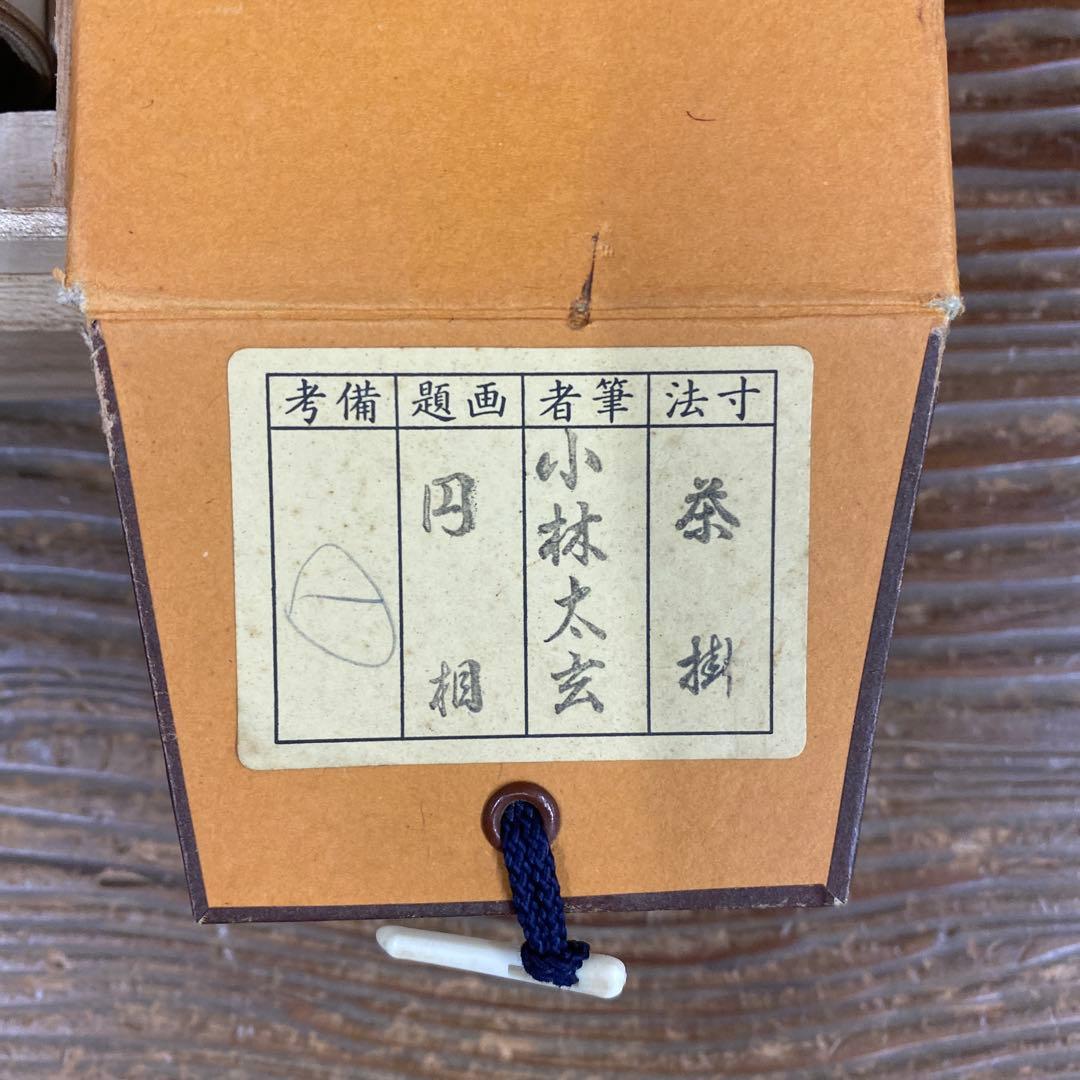 寸法
茶掛
筆者
小林太玄
画題
円相
備考
一